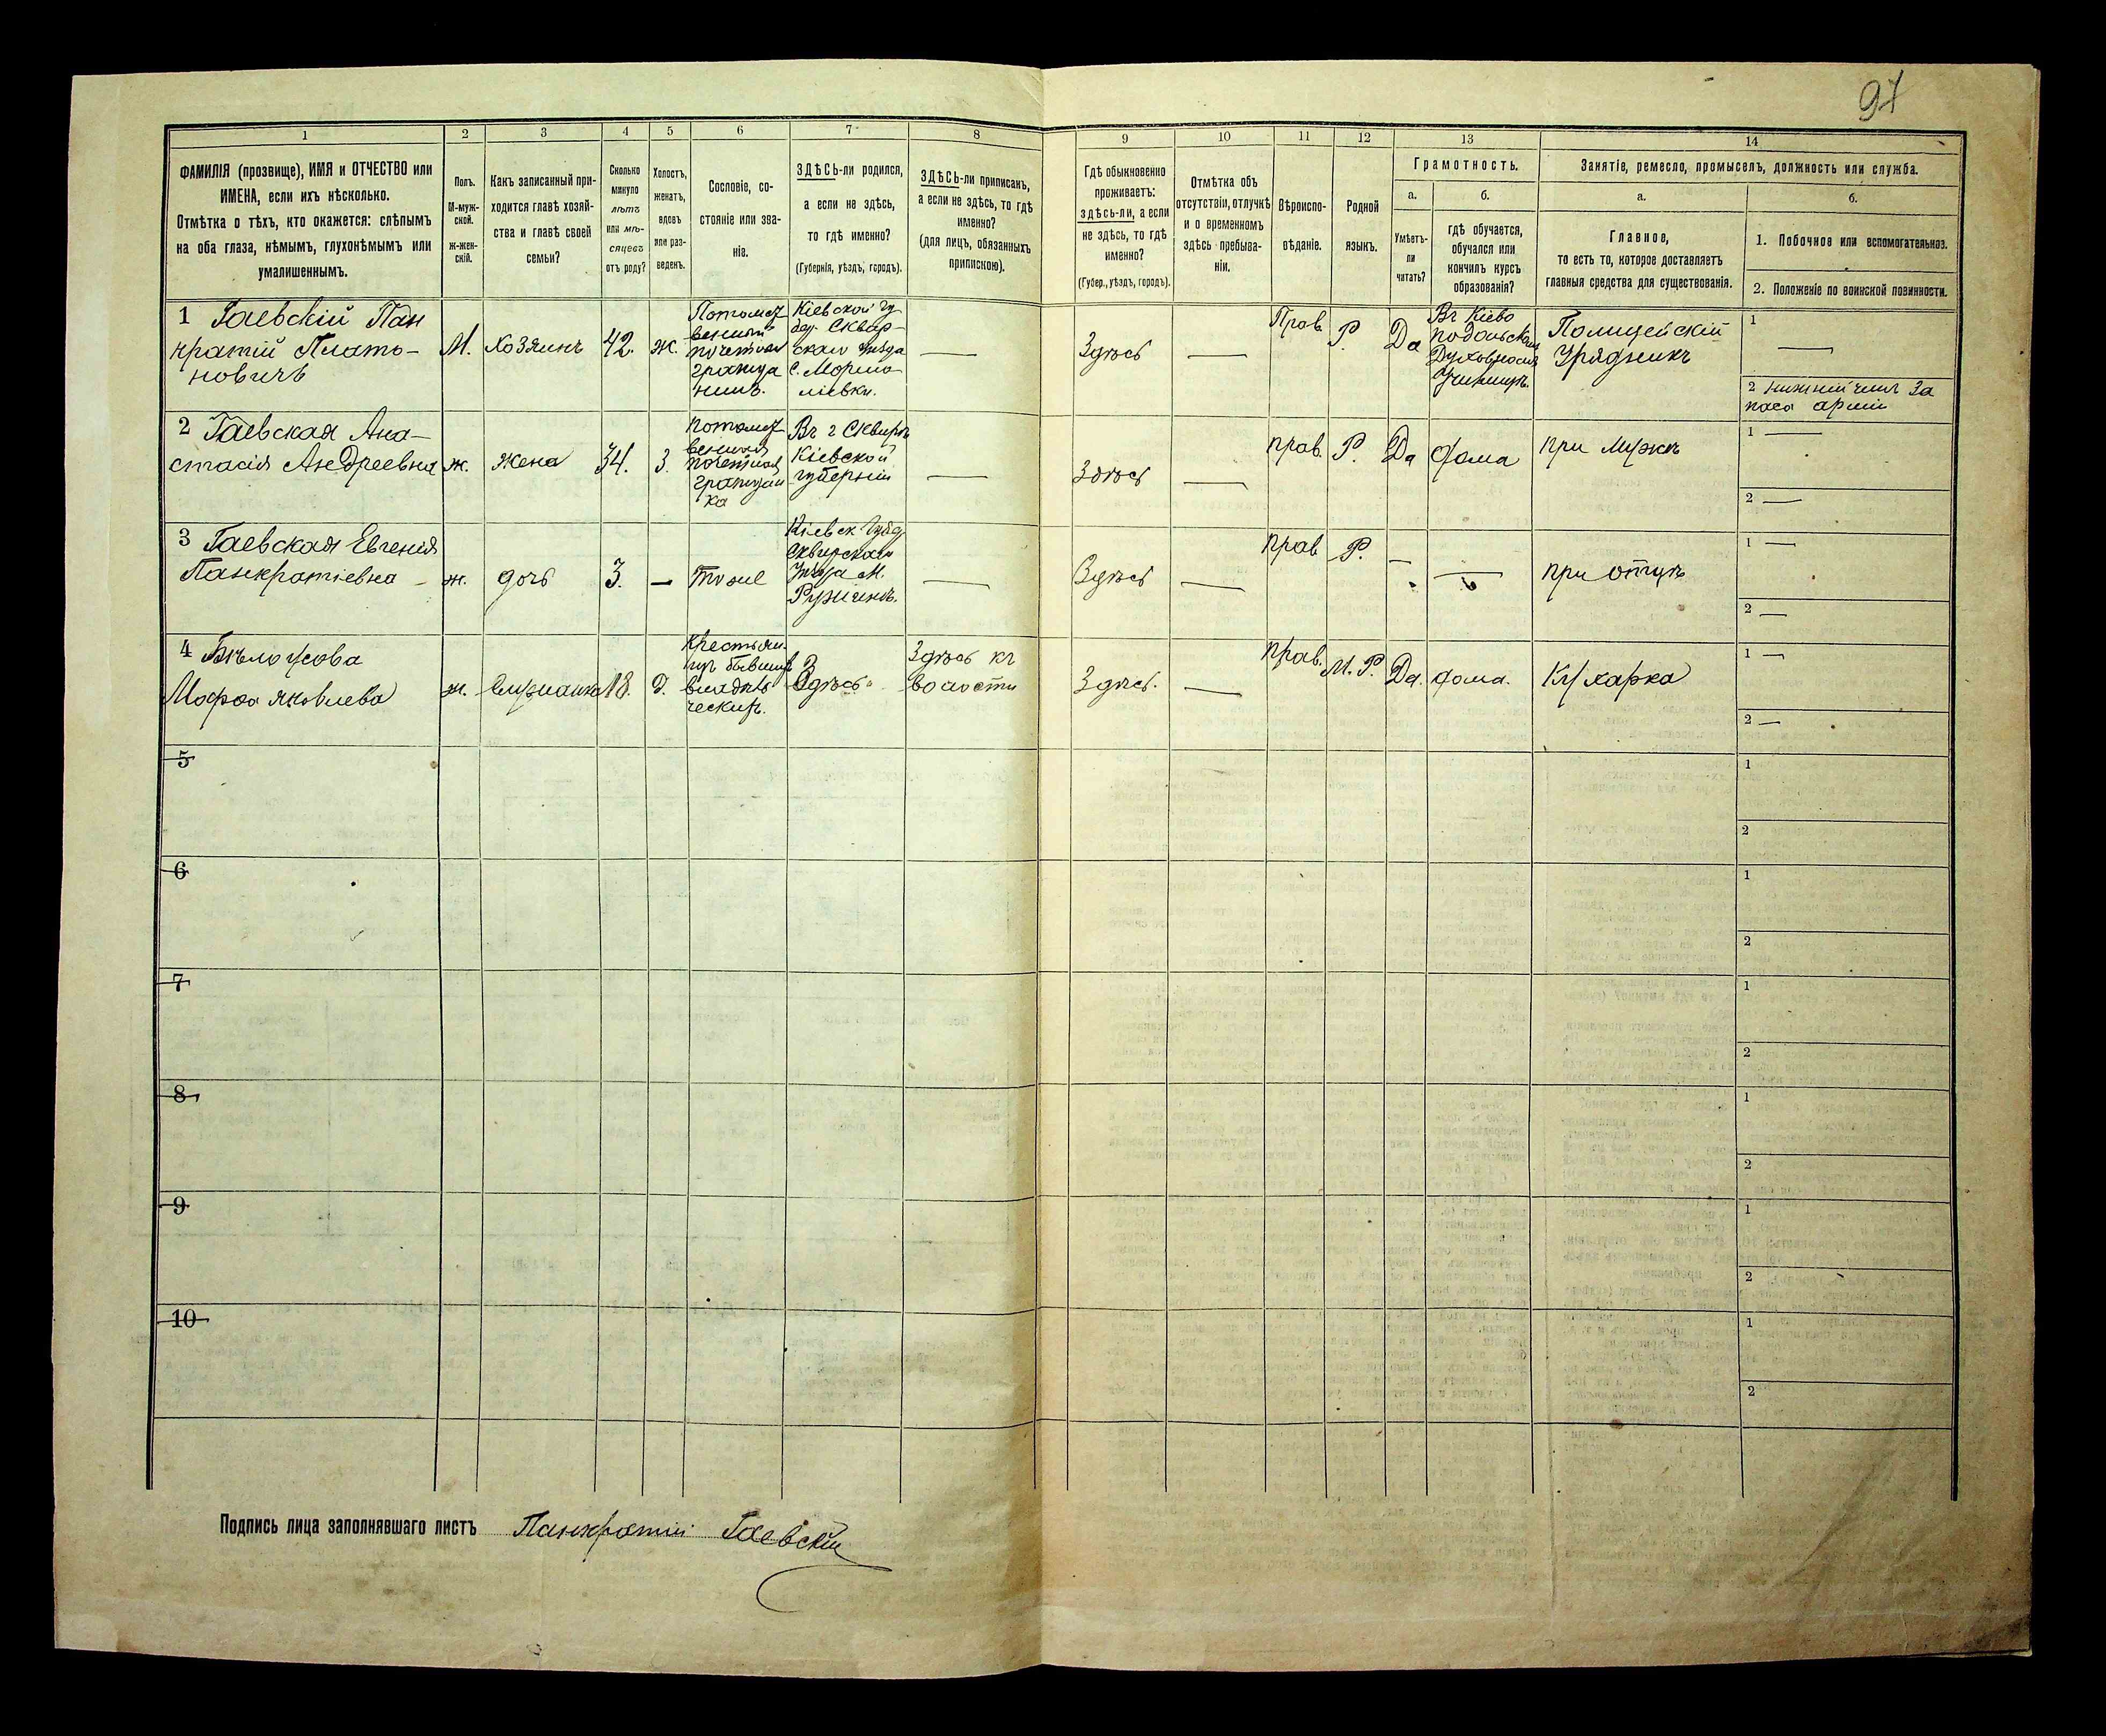 97
1 2 3 4 5 6 7 8 9 10 11 12 13 14
ФАМИЛІЯ (прозвище), ИМЯ и ОТЧЕСТВО или
ИМЕНА, если ихъ нѣсколько.
Отмѣтка о тѣхъ, кто окажется: слѣпымъ
на оба глаза, нѣмымъ, глухонѣмымъ или
умалишеннымъ.
Полъ.
М-муж-
ской.
ж-жен-
скій.
Какъ записанный при-
ходится главѣ хозяй-
ства и главѣ своей
семьи?
Сколько
минуло
лѣтъ
или мѣ-
сяцевъ
отъ роду?
Холостъ,
женатъ,
вдовъ
или раз-
веденъ.
Сословіе, со-
стояніе или зва-
ніе.
ЗДѢСЬ-ли родился,
а если не здѣсь,
то гдѣ именно?
(Губернія, уѣздъ, городъ).
ЗДѢСЬ-ли приписанъ,
а если не здѣсь, то гдѣ
именно?
(для лицъ, обязанныхъ
припискою).
Гдѣ обыкновенно
проживаетъ:
здѣсь-ли, а если
не здѣсь, то гдѣ
именно?
(Губер., уѣздъ, городъ).
Отмѣтка объ
отсутствіи, отлучкѣ
и о временномъ
здѣсь пребыва-
ніи.
Вѣроиспо-
вѣданіе.
Родной
языкъ.
Грамотность.
а.
Умѣетъ-
ли
читать?
б.
гдѣ обучается,
обучался или
кончилъ курсъ
образованія?
Занятіе, ремесло, промыселъ, должность или служба.
а.
Главное,
то есть то, которое доставляетъ
главныя средства для существованія.
б.
1. Побочное или вспомогательное.
2. Положеніе по воинской повинности.
1 Гаевскій Пан
кратій Плато-
новичъ
М.
хозяинъ
42.
ж.
Потомст
венный
почетный
гражда
нинъ.
Кіевской гу
бер. Сквир-
скаго уѣзда
с.
—
Здѣсь
—
Прав.
Р.
Да
Въ Кіево
подольском
Духовном
Училищѣ.
Полицейскій
Урядникъ
1 —
2 нижній чинъ за
паса арміи
2 Гаевская Ана-
стасія Андреевна
ж.
жена
34.
З.
потомст
венная
почетная
граждан
ка
Въ г Сквирѣ
Кіевской
губерніи
—
Здѣсь
—
прав.
Р.
Да
дома
при мужѣ
1 —
2 —
3 Гаевская Евгенія
Панкратіевна
ж.
дочь
3.
—
тоже
Кіевск губер
Сквирскаго
Уѣзда М.
Ружинѣ.
—
Здѣсь
—
прав
Р.
—
—
при отцѣ
1 —
2 —
4 Бѣлоусова
Марфа Яковлева
ж.
служанка
18.
Д.
Крестьян.
изъ бывших
владѣль
ческихъ.
Здѣсь
Здѣсь къ
волости
Здѣсь.
—
прав.
М. Р.
Да.
дома.
Кухарка
1 —
2 —
5
1
2
6
1
2
7
1
2
8
1
2
9
1
2
10
1
2
Подпись лица заполнявшаго листъ Панкратій Гаевскій